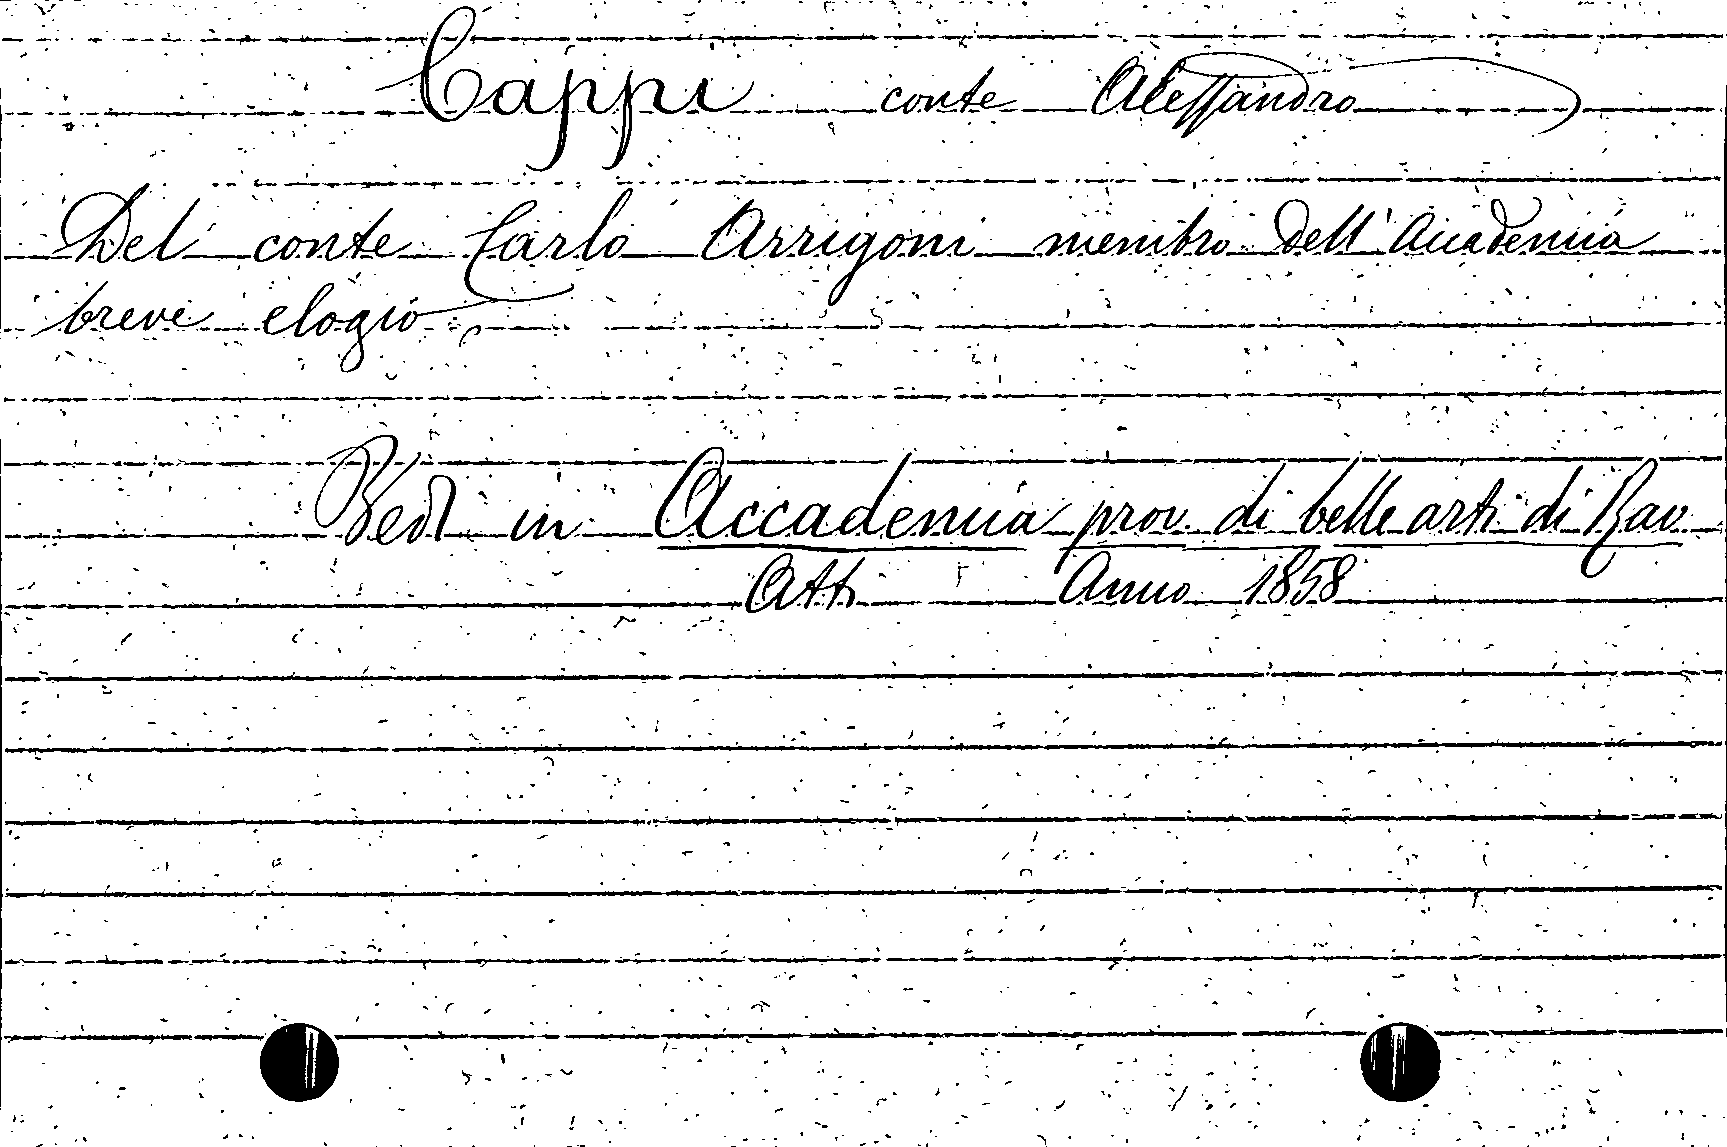 Cappi conte Alessandro
Del conte Carlo Arrigoni membro dell'Accademia
breve elogio
Vedi in Accademia prov. di belle arti di Rav
Atti Anno 1858